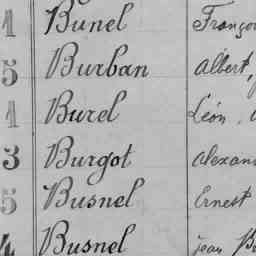 1 Bunel Franço
5 Burban Albert,
1 Burel Léon,
3 Burgot Alexan
5 Busnel Ernest
4 Busnel Jean